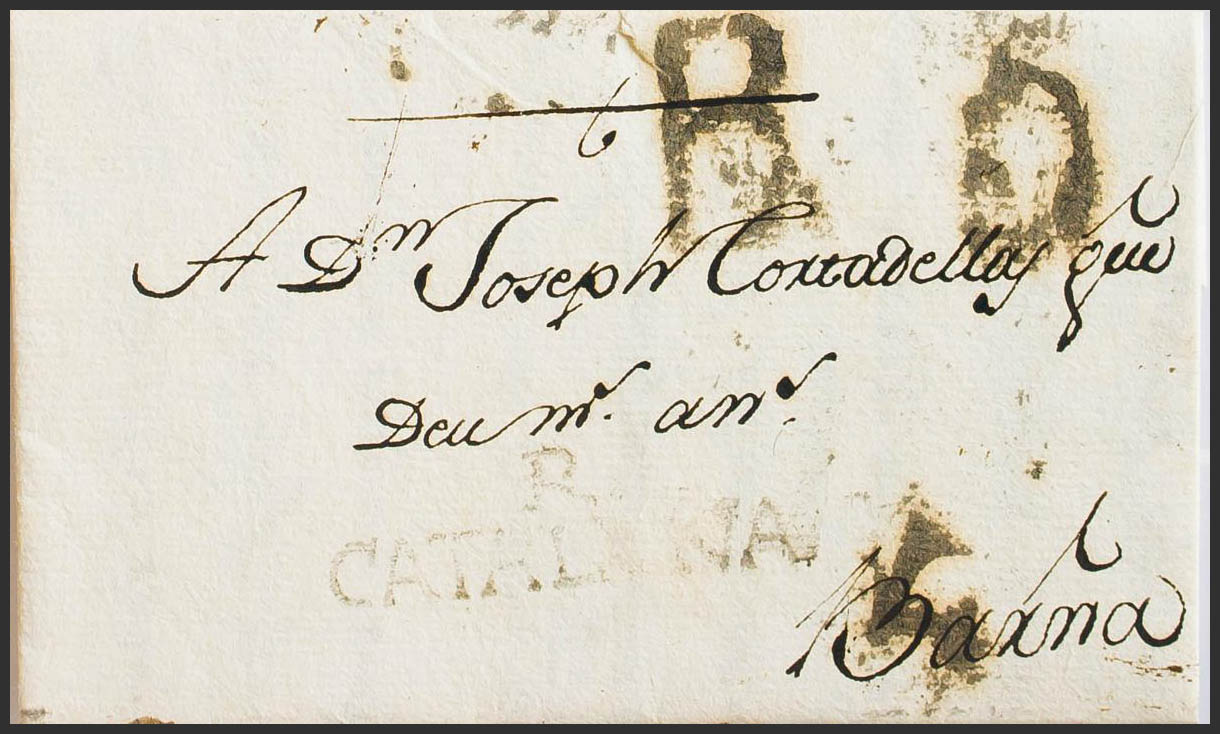 R 5
A Dn Joseph Cortadellas que
Deu ms. ans.
R.
CATALUÑA
Barna